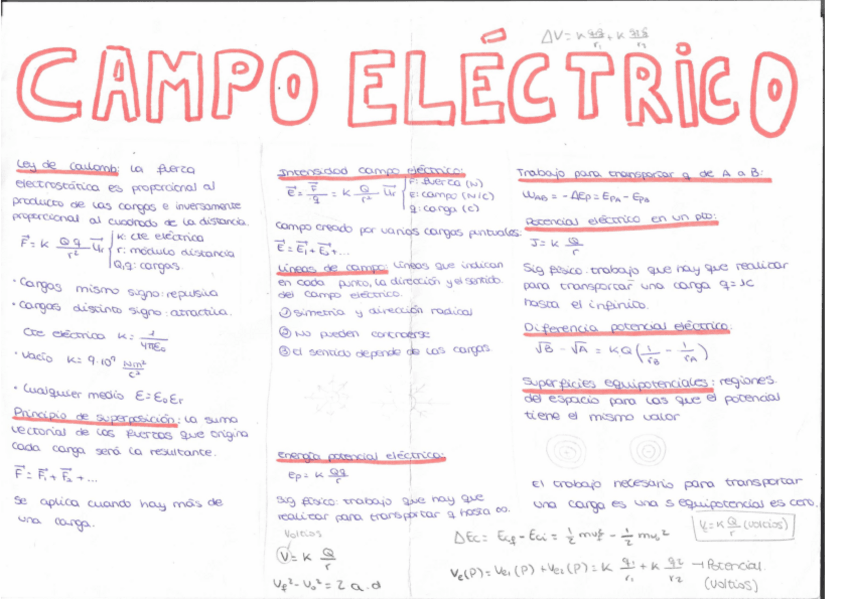 ΔV = K qq/r₁ + K qq/r₂
CAMPO ELÉCTRICO
Ley de coulomb: La fuerza
electrostática es proporcional al
producto de las cargas e inversamente
proporcional al cuadrado de la distancia.
F⃗ = K Qq/r² u⃗r { K: cte eléctrica
r: módulo distancia
Q,q: cargas
· Cargas mismo signo: repulsiva
· Cargas distinto signo: atractiva.
Cte eléctrica K = 1/4πε₀
· Vacío K = 9·10⁹ Nm²/C²
· Cualquier medio ε = ε₀ εr
Principio de superposición: La suma
vectorial de las fuerzas que origina
cada carga será la resultante.
F⃗ = F⃗₁ + F⃗₂ + ...
Se aplica cuando hay más de
una carga.
Intensidad campo eléctrico:
E⃗ = F⃗/q = K Q/r² u⃗r { F: fuerza (N)
E: campo (N/C)
q: carga (C)
Campo creado por varias cargas puntuales:
E⃗ = E⃗₁ + E⃗₂ + ...
Líneas de campo: Líneas que indican
en cada punto, la dirección y el sentido
del campo eléctrico.
① Simetría y dirección radial
② No pueden
③ El sentido depende de las cargas
Energía potencial eléctrica:
Ep = K Qq/r
Sig físico: trabajo que hay que
realizar para transportar q hasta ∞.
Voltios
V = K Q/r
Vf² - Vo² = 2 a·d
Trabajo para transportar q de A a B:
WAB = -ΔEp = EPA - EPB
Potencial eléctrico en un pto:
J = K Q/r
Sig físico: trabajo que hay que realizar
para transportar una carga q=1C
hasta el infinito.
Diferencia potencial eléctrico.
VB - VA = KQ (1/rB - 1/rA)
Superficies equipotenciales: regiones
del espacio para las que el potencial
tiene el mismo valor
El trabajo necesario para transportar
una carga es una S equipotencial es cero.
V = K Q/r (voltios)
ΔEc = Ecf - Eci = 1/2 mvf² - 1/2 mvo²
Ve(P) = Ve1(P) + Ve2(P) = K q1/r1 + K q2/r2 → Potencial
(Voltios)